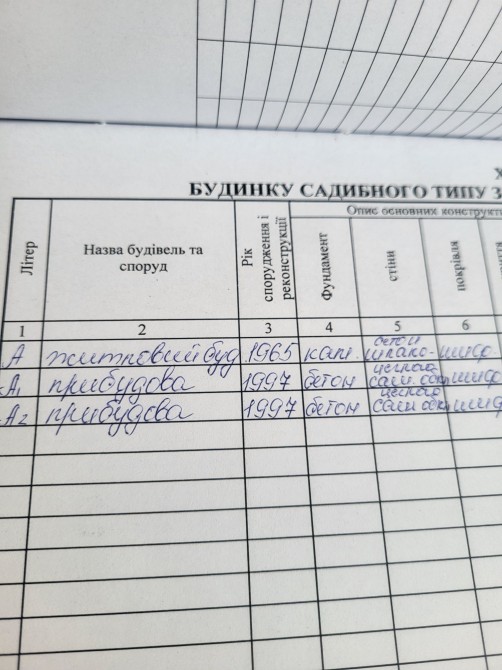 БУДИНКУ САДИБНОГО ТИПУ З
Опис основних конструкт
Літер
Назва будівель та споруд
Рік спорудження і реконструкції
Фундамент
стіни
покрівля
1 2 3 4 5 6
А житловий буд 1965 кам. бетон шлако- шифр
А1 прибудова 1997 бетон цегла шифр
А2 прибудова 1997 бетон цегла шифр